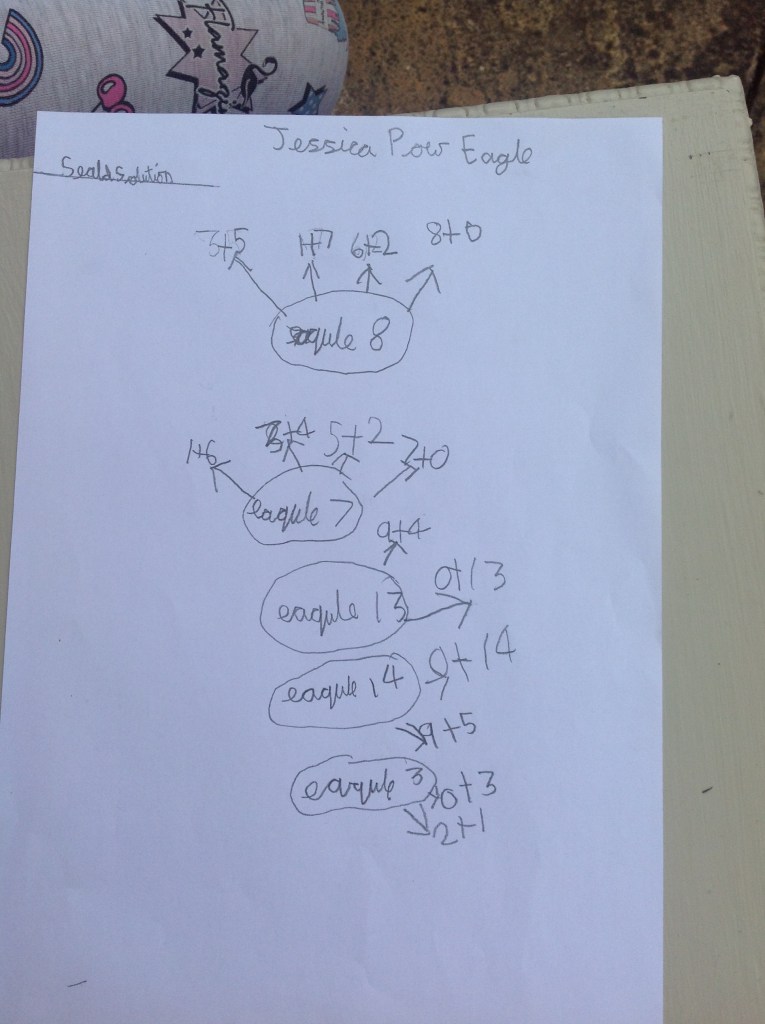 Jessica Pow Eagle
Seald Solution
3+5 1+7 6+2 8+0
eaqule 8
1+6 3+4 5+2 7+0
eaqule 7
9+4
0+13
eaqule 13
0+14
eaqule 14
9+5
eaqule 3
0+3
2+1